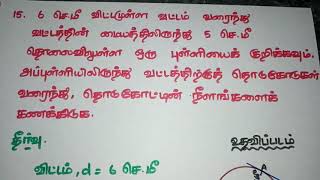 15. 6 செ.மீ விட்டமுள்ள வட்டம் வரைந்து
வட்டத்தின் மையத்திலிருந்து 5 செ.மீ
தொலைவிலுள்ள ஒரு புள்ளியைக் குறிக்கவும்.
அப்புள்ளியிலிருந்து வட்டத்திற்குத் தொடுகோடுகள்
வரைந்து, தொடுகோட்டின் நீளங்களைக்
கணக்கிடுக.
தீர்வு.
உதவிப்படம்
விட்டம், d = 6 செ.மீ
A